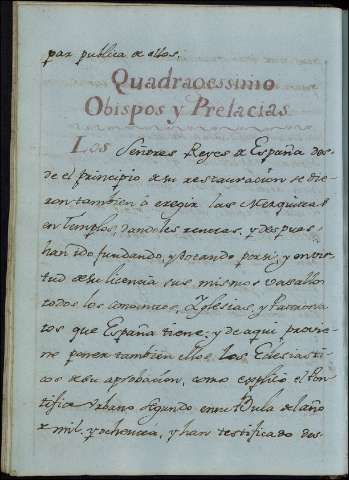 paz publica de ellos.
Quadragessimo
Obispos y Prelacias
Los Señores Reyes de España des-
de el principio de su restauracion se die-
ron tambien à eregir las Mezquitas
en Templos, dandoles rentas, y despues
han ido fundando, y dotando por si, y en vir-
tud de su licencia sus mismos vasallos
todos los Combentos, Yglesias, y
que España tiene; y de aqui provie-
ne poner tambien ellos los Eclesiasti-
cos de su aprobacion, como explicò el Pon-
tifice Urbano Segundo en su Bula del año
de mil, y ochenta, y han testificado des-